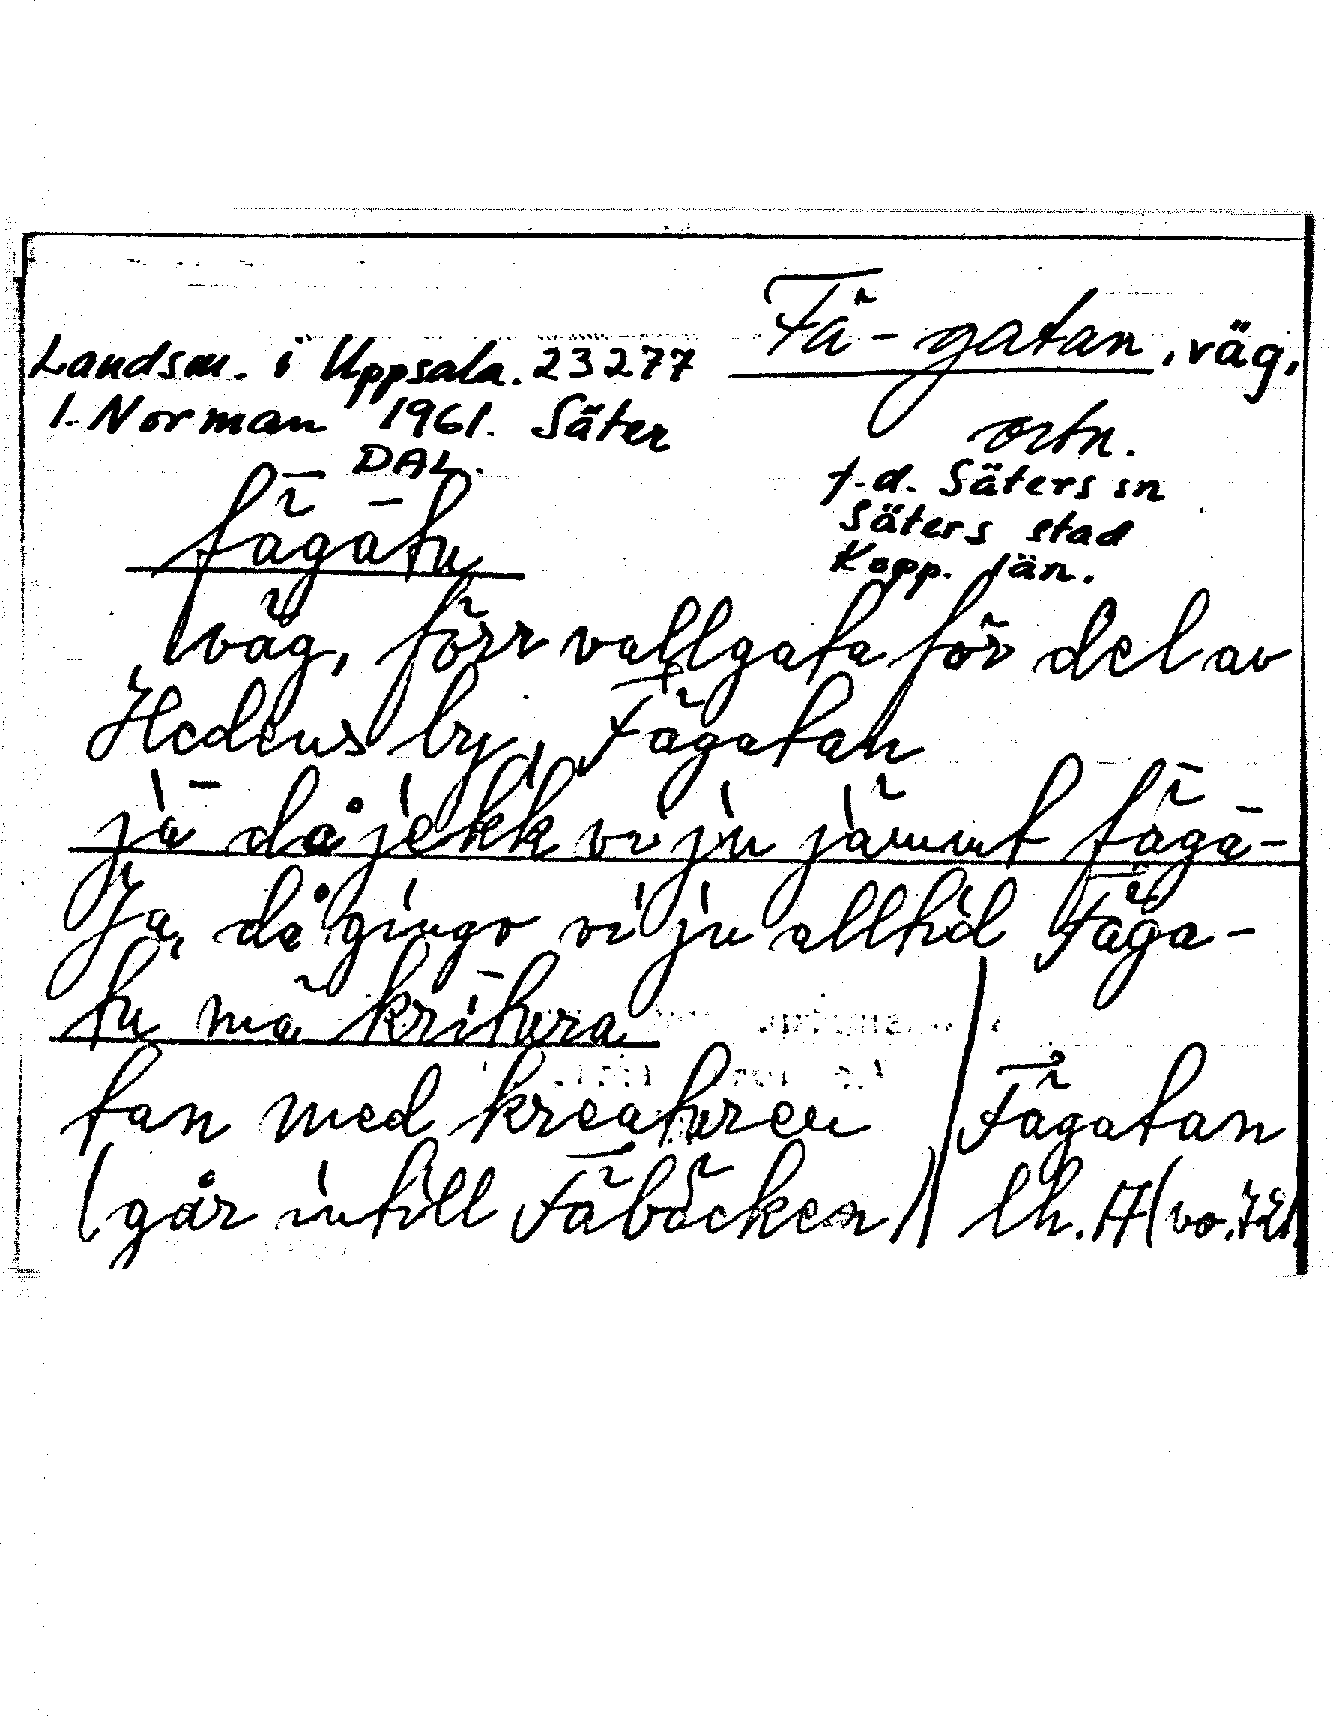 Fä-gatan, väg,
ortn.
Landsm. i Uppsala. 23277
I. Norman 1961. Säter
DAL.
f.d. Säters sn
Säters stad
Kopp. län.
fägātu
väg, förr vallgata för del av
Hedens by, Fägatan
jā då jekk vi ju jämmt fägā-
Ja, då gingo vi ju alltid Fäga-
tu mä krītura
tan med kreaturen Fägatan
(går intill Fäbäcken) lh. A (vo. 72)